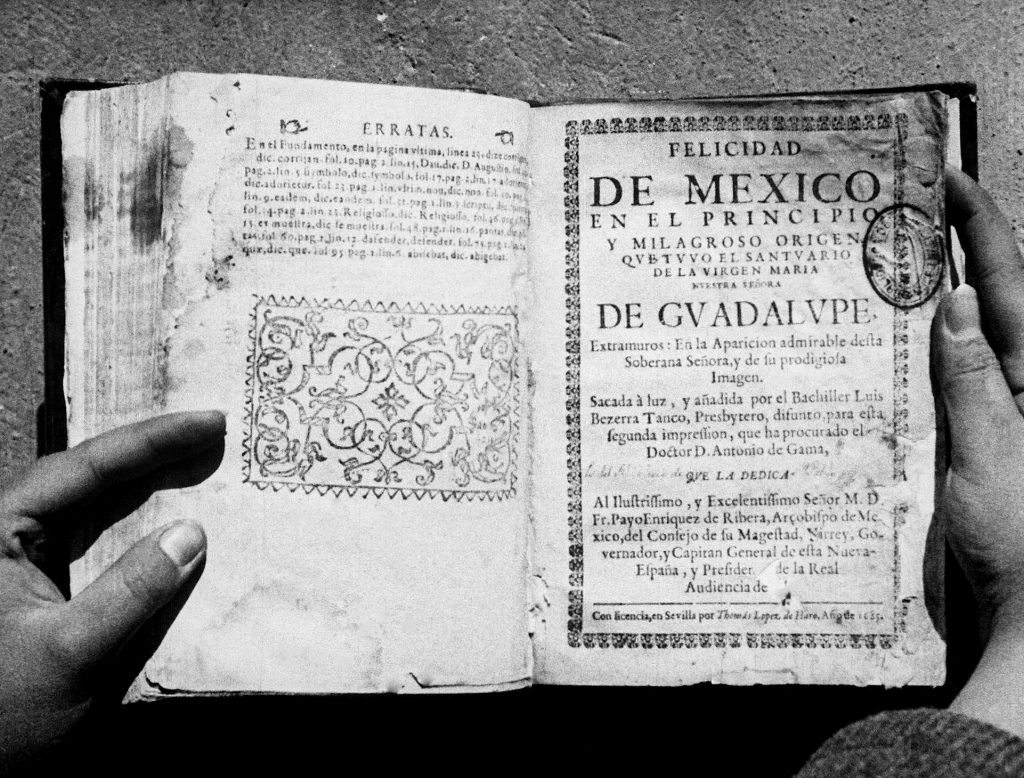 ERRATAS.
En el Fundamento, en la pagina vltima, linea 25. dize
dic. corrijan. fol. 10. pag. 2. lin. 15. Dau. dic. D. Augustin.
pag. 2. lin. 5 simbolo, dic. symbolo. fol. 17. pag. 2. lin. 17
dic. adorietur. fol. 23. pag. 1. lin. vltim. nou, dic. non. fol.
lin. 9. eadem, dic. eandem. fol. pag. 2. lin. 5
fol. pag. 2. lin. 22. Religiosso, dic. Religioso, fol. 46. pag.
15. es muestra, dic se muestra. fol. 48. pag. 1. lin. 16.
fol. 60. pag. 2. lin. 12. dafender, defender. fol. 75. pag. 1.
que, dic. que. fol 95 pag. 1. lin. 6. abiebat, dic. abigebat.
FELICIDAD
DE MEXICO
EN EL PRINCIPIO
Y MILAGROSO ORIGEN
QVE TVVO EL SANTVARIO
DE LA VIRGEN MARIA
NVESTRA SEÑORA
DE GVADALVPE,
Extramuros: En la Aparicion admirable desta
Soberana Señora, y de su prodigiosa
Imagen.
Sacada à luz, y añadida por el Bachiller Luis
Bezerra Tanco, Presbytero, difunto, para esta
segunda impression, que ha procurado el
Doctor D. Antonio de Gama,
QVE LA DEDICA
Al Ilustrissimo, y Excelentissimo Señor M. D.
Fr. Payo Enriquez de Ribera, Arçobispo de Me-
xico, del Consejo de su Magestad, Virrey, Go-
vernador, y Capitan General de esta Nueva-
España, y Presiden de la Real
Audiencia de
Con licencia, en Sevilla por Thomás Lopez de Haro, Año de 1685.